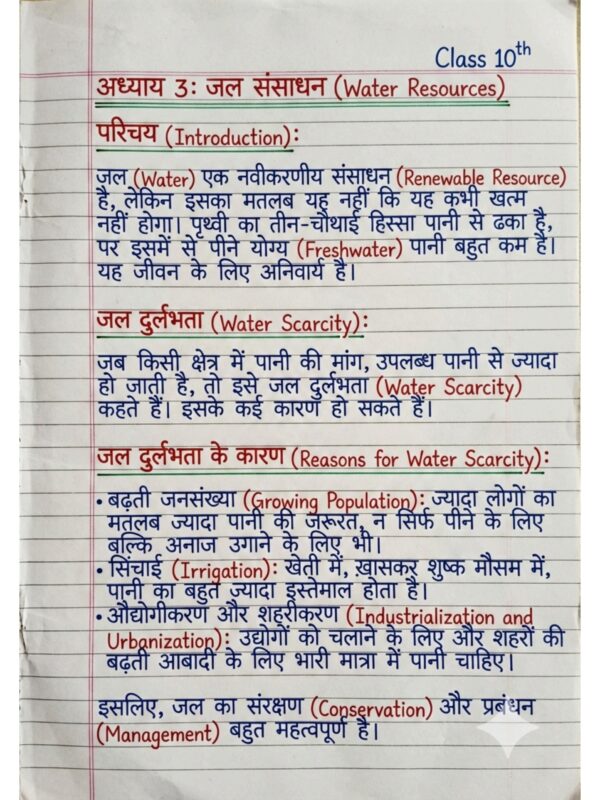 Class 10th
अध्याय 3: जल संसाधन (Water Resources)
परिचय (Introduction):
जल (Water) एक नवीकरणीय संसाधन (Renewable Resource)
है, लेकिन इसका मतलब यह नहीं कि यह कभी खत्म
नहीं होगा। पृथ्वी का तीन-चौथाई हिस्सा पानी से ढका है,
पर इसमें से पीने योग्य (Freshwater) पानी बहुत कम है।
यह जीवन के लिए अनिवार्य है।
जल दुर्लभता (Water Scarcity):
जब किसी क्षेत्र में पानी की मांग, उपलब्ध पानी से ज्यादा
हो जाती है, तो इसे जल दुर्लभता (Water Scarcity)
कहते हैं। इसके कई कारण हो सकते हैं।
जल दुर्लभता के कारण (Reasons for Water Scarcity):
• बढ़ती जनसंख्या (Growing Population): ज्यादा लोगों का
मतलब ज्यादा पानी की जरूरत, न सिर्फ पीने के लिए
बल्कि अनाज उगाने के लिए भी।
• सिंचाई (Irrigation): खेती में, ख़ासकर शुष्क मौसम में,
पानी का बहुत ज्यादा इस्तेमाल होता है।
• औद्योगीकरण और शहरीकरण (Industrialization and
Urbanization): उद्योगों को चलाने के लिए और शहरों की
बढ़ती आबादी के लिए भारी मात्रा में पानी चाहिए।
इसलिए, जल का संरक्षण (Conservation) और प्रबंधन
(Management) बहुत महत्वपूर्ण है।